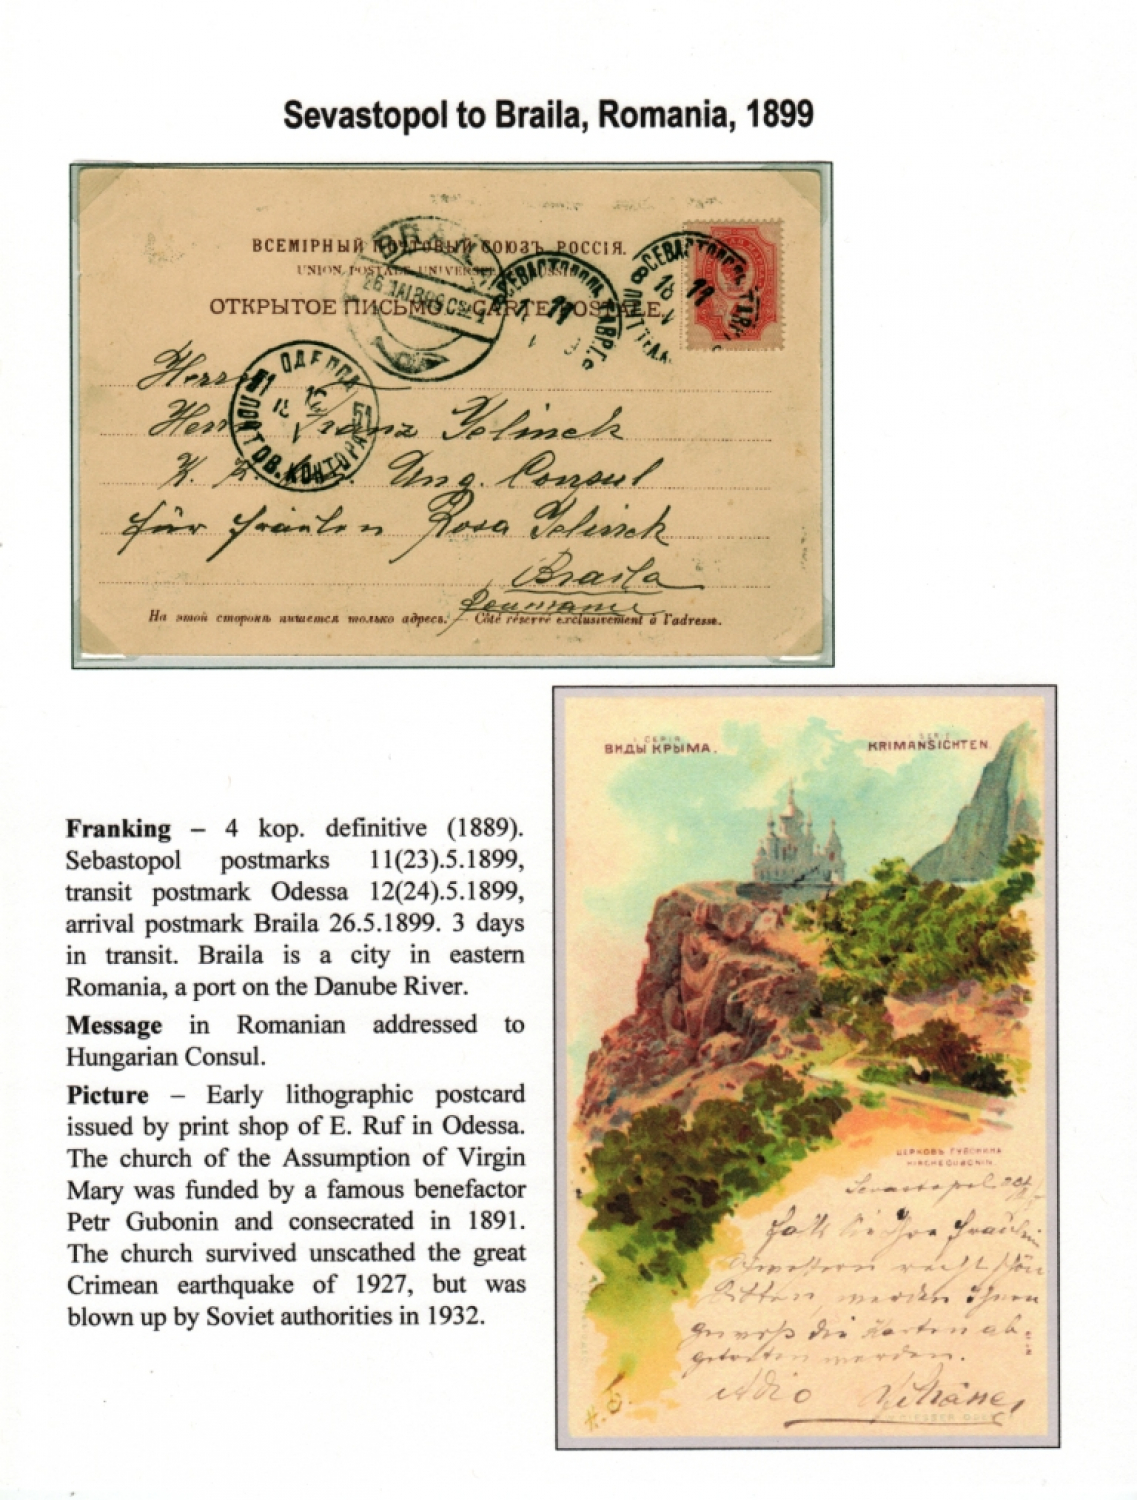 Sevastopol to Braila, Romania, 1899
ВСЕМІРНЫЙ ПОЧТОВЫЙ СОЮЗЪ. РОССІЯ.
UNION POSTALE UNIVERSELLE RUSSIE
ОТКРЫТОЕ ПИСЬМО CARTE POSTALE.
BRAILA
СЕВАСТОПОЛЬ ТАВР. Г.
11
СЕВАСТОПОЛЬ ТАВР.
18 11
ОДЕССА
51 12 51
ПОЧТОВ. КОНТОРА
Herrn
Herrn Franz Jelinek
K. K. Ung. Consul
für Fräulein Rosa Jelinek
Braila
Roumanie
На этой сторонѣ пишется только адресъ. — Côté réservé exclusivement à l'adresse.
ВИДЫ КРЫМА.
KRIMANSICHTEN.
ЦЕРКОВЬ ГУБОНИНА
KIRCHE GUBONIN.
Sevastopol
Falls Sie Ihre Fräulein
Schwestern recht schön
bitten, werden Ihnen
gewiss die Karten ab-
getreten werden.
Adio
Franking – 4 kop. definitive (1889).
Sebastopol postmarks 11(23).5.1899,
transit postmark Odessa 12(24).5.1899,
arrival postmark Braila 26.5.1899. 3 days
in transit. Braila is a city in eastern
Romania, a port on the Danube River.
Message in Romanian addressed to
Hungarian Consul.
Picture – Early lithographic postcard
issued by print shop of E. Ruf in Odessa.
The church of the Assumption of Virgin
Mary was funded by a famous benefactor
Petr Gubonin and consecrated in 1891.
The church survived unscathed the great
Crimean earthquake of 1927, but was
blown up by Soviet authorities in 1932.